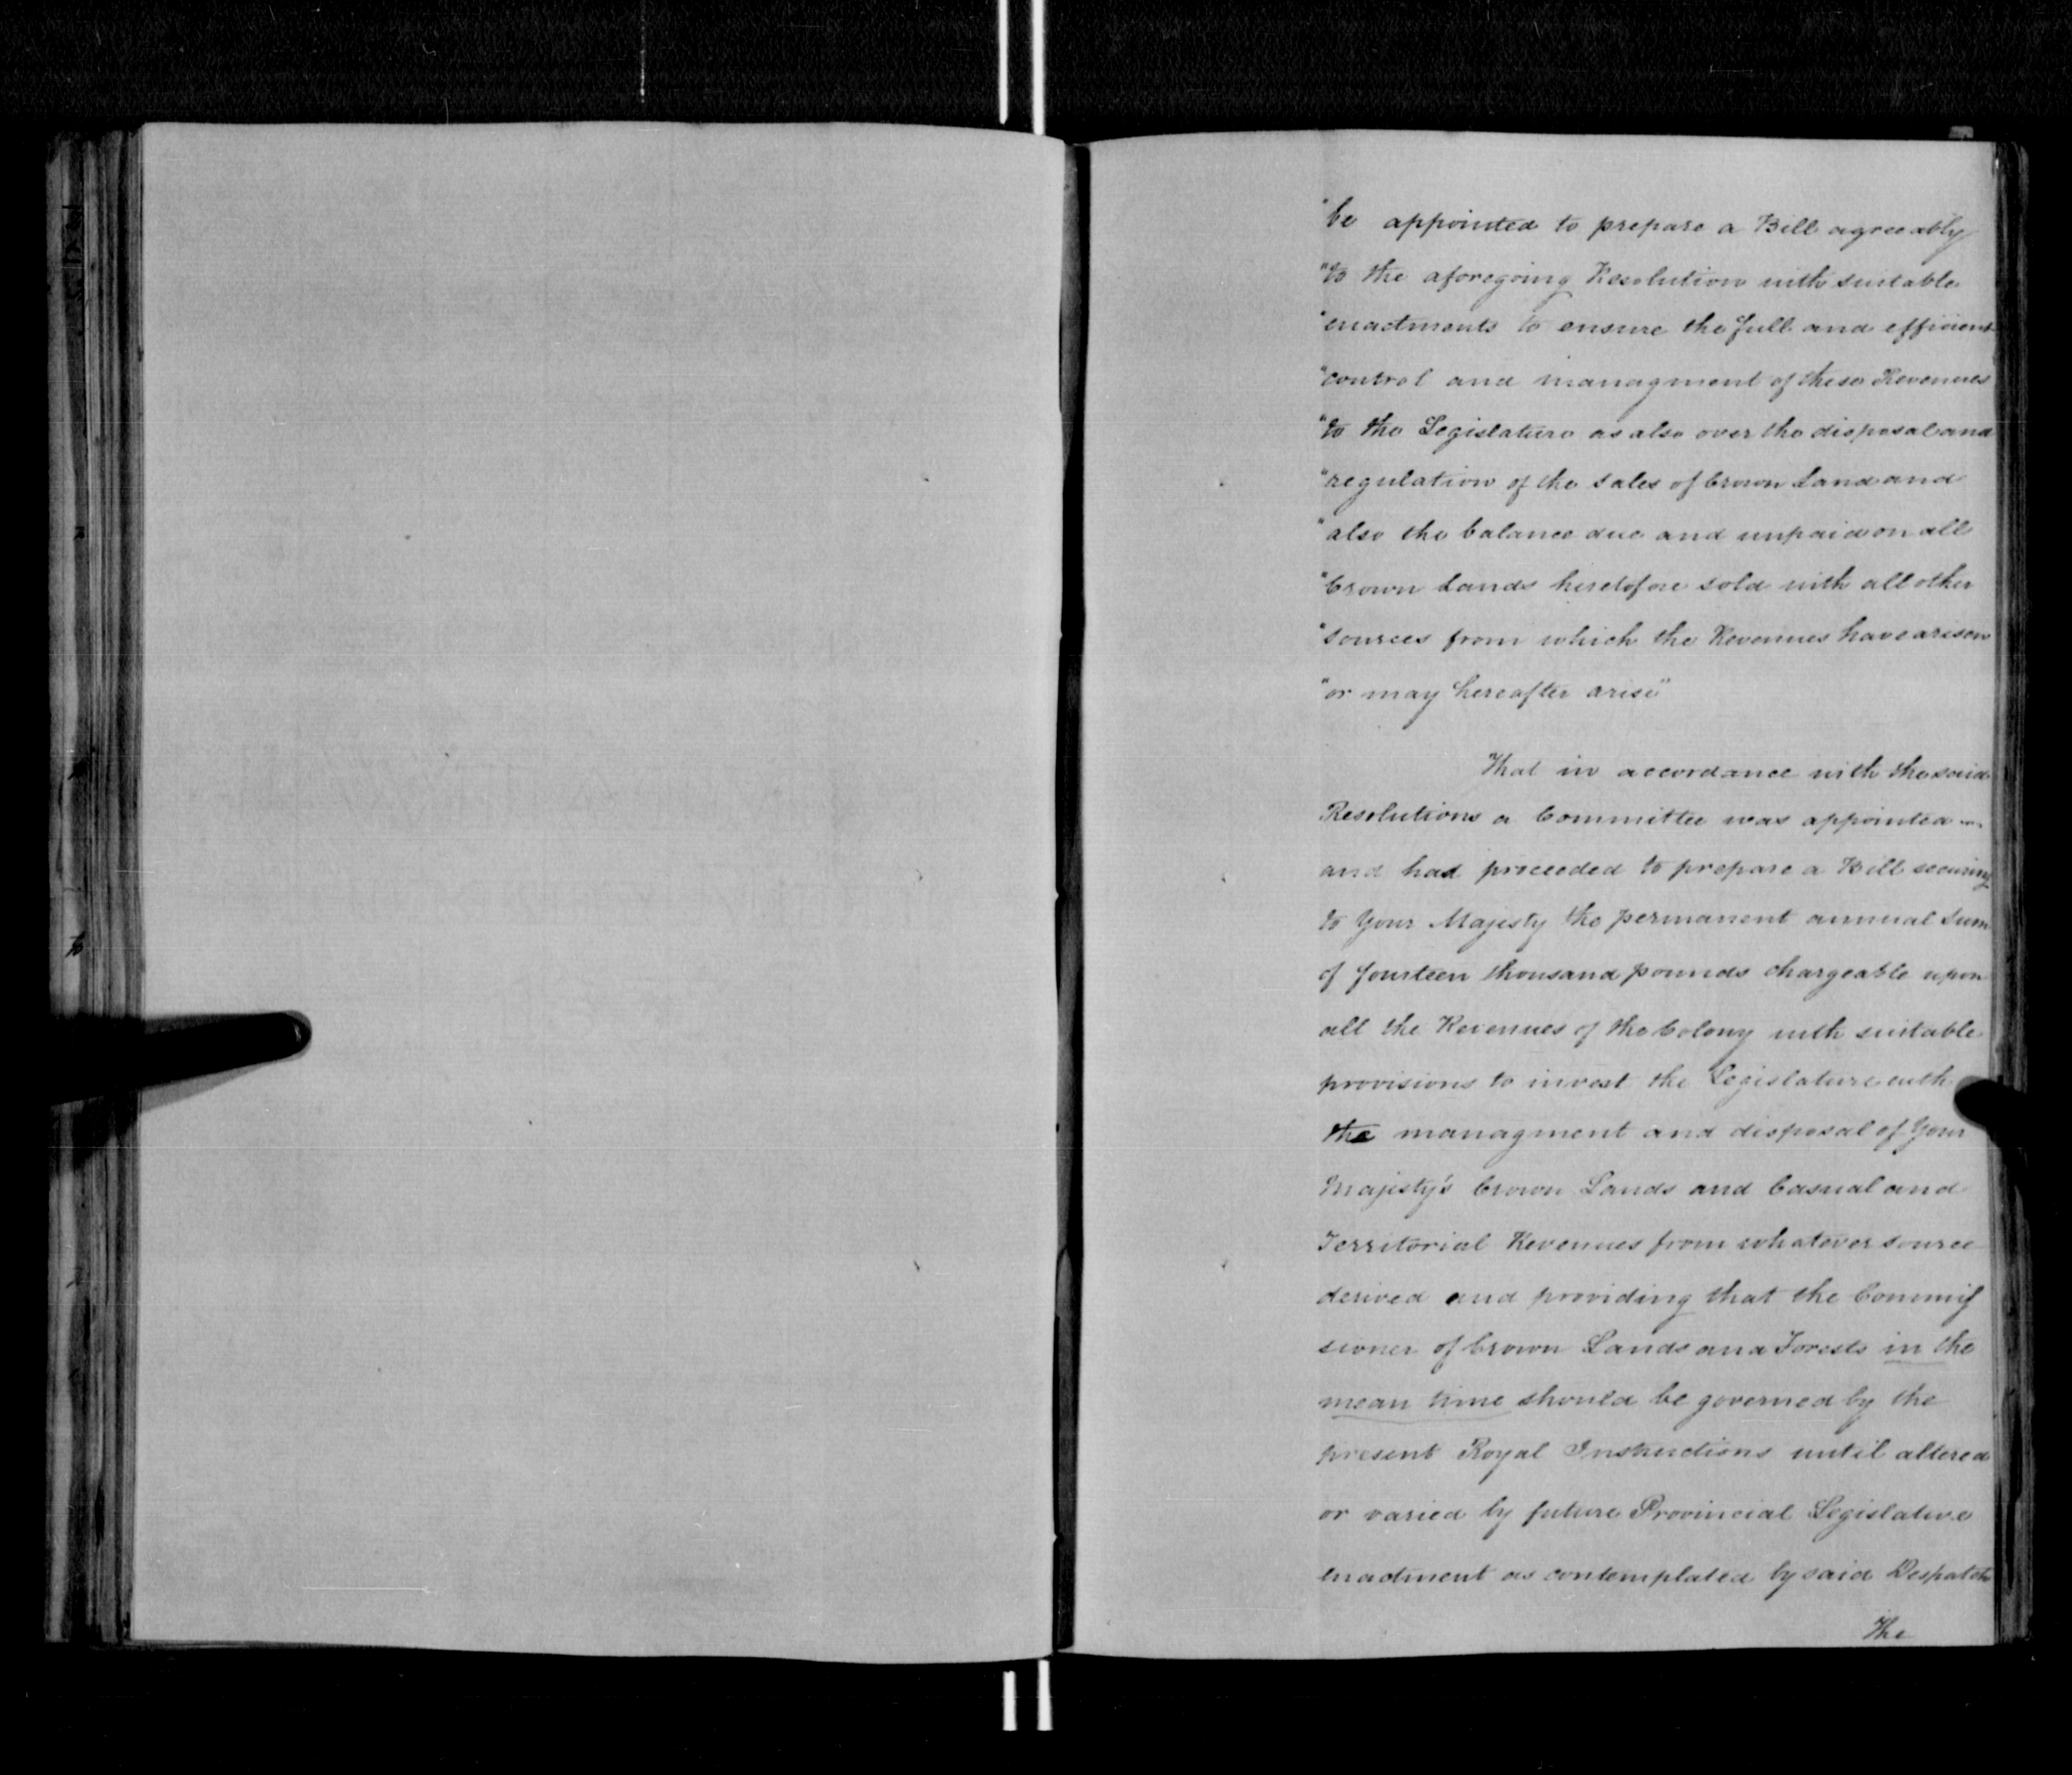 "be appointed to prepare a Bill agreeably
"to the aforegoing Resolution with suitable
"enactments to ensure the full and efficient
"control and managment of these Revenues
"to the Legislature as also over the disposal and
"regulation of the sales of Crown Land and
"also the balance due and unpaid on all
"Crown Lands heretofore sold with all other
"sources from which the Revenues have arisen
"or may hereafter arise"
That in accordance with the said
Resolutions a Committee was appointed
and had proceeded to prepare a Bill securing
to Your Majesty the permanent annual Sum
of fourteen thousand pounds chargeable upon
all the Revenues of the Colony with suitable
provisions to invest the Legislature with
the managment and disposal of Your
Majesty's Crown Lands and Casual and
Territorial Revenues from whatever source
derived and providing that the Commis
sioner of Crown Lands and Forests in the
mean time should be governed by the
present Royal Instructions until altered
or varied by future Provincial Legislative
enactment as contemplated by said Despatch
The